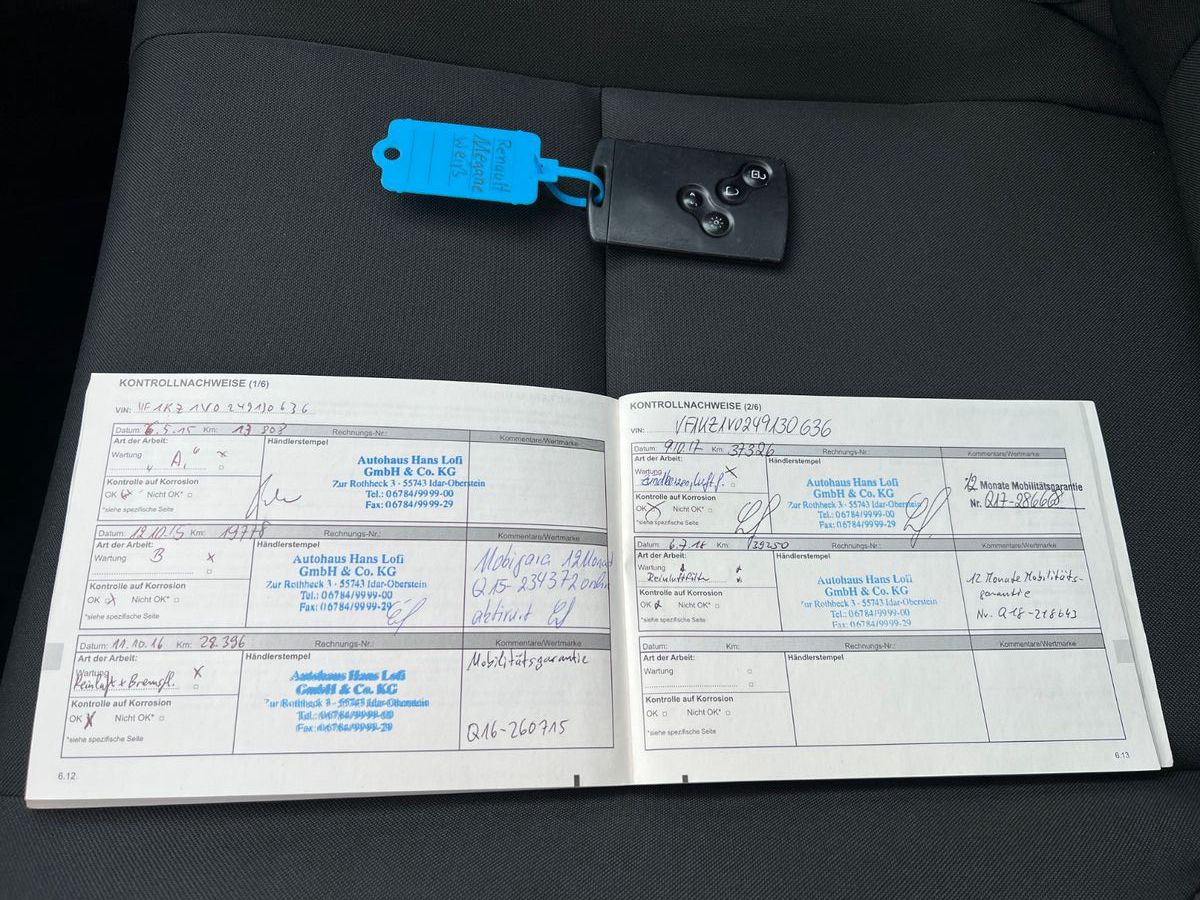 Renault
Megane
Weiß
KONTROLLNACHWEISE (1/6)
VIN: VF1KZ1V0249130636
Datum: 6.5.15 Km: 13 803 Rechnungs-Nr.: Kommentare/Wertmarke
Art der Arbeit: Händlerstempel
Wartung x
A,
Autohaus Hans Lofi
GmbH & Co. KG
Zur Rothheck 3 · 55743 Idar-Oberstein
Tel.: 06784/9999-00
Fax: 06784/9999-29
Kontrolle auf Korrosion
OK Nicht OK*
*siehe spezifische Seite
Datum: 12.10.15 Km: 19778 Rechnungs-Nr.: Kommentare/Wertmarke
Art der Arbeit: Händlerstempel
Wartung B x
Autohaus Hans Lofi
GmbH & Co. KG
Zur Rothheck 3 · 55743 Idar-Oberstein
Tel.: 06784/9999-00
Fax: 06784/9999-29
Mobigara 12 Monat
Q15-234372 online
aktiviert
Kontrolle auf Korrosion
OK x Nicht OK*
*siehe spezifische Seite
Datum: 11.10.16 Km: 28.396 Rechnungs-Nr.: Kommentare/Wertmarke
Art der Arbeit: Händlerstempel
Wartung x
Reinluft + Bremsfl.
Autohaus Hans Lofi
GmbH & Co. KG
Zur Rothheck 3 · 55743 Idar-Oberstein
Tel.: 06784/9999-00
Fax: 06784/9999-29
Mobilitätsgarantie
Q16-260715
Kontrolle auf Korrosion
OK x Nicht OK*
*siehe spezifische Seite
6.12
KONTROLLNACHWEISE (2/6)
VIN: VF1KZ1V0249130636
Datum: 9.10.17 Km: 37326 Rechnungs-Nr.: Kommentare/Wertmarke
Art der Arbeit: Händlerstempel
Wartung x
Autohaus Hans Lofi
GmbH & Co. KG
Zur Rothheck 3 · 55743 Idar-Oberstein
Tel.: 06784/9999-00
Fax: 06784/9999-29
12 Monate Mobilitätsgarantie
Nr. Q17-286668
Kontrolle auf Korrosion
OK x Nicht OK*
*siehe spezifische Seite
Datum: 6.7.18 Km: 39250 Rechnungs-Nr.: Kommentare/Wertmarke
Art der Arbeit: Händlerstempel
Wartung
Reinluftfilter
Autohaus Hans Lofi
GmbH & Co. KG
Zur Rothheck 3 · 55743 Idar-Oberstein
Tel.: 06784/9999-00
Fax: 06784/9999-29
12 Monate Mobilitäts-
garantie
Nr. Q-18-218643
Kontrolle auf Korrosion
OK Nicht OK*
*siehe spezifische Seite
Datum: Km: Rechnungs-Nr.: Kommentare/Wertmarke
Art der Arbeit: Händlerstempel
Wartung
Kontrolle auf Korrosion
OK Nicht OK*
*siehe spezifische Seite
6.13